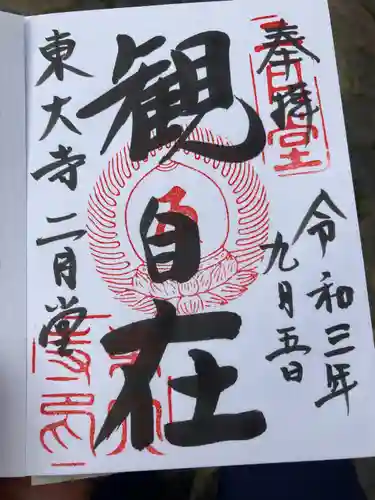 奉拝
令和三年
九月五日
観自在
東大寺 二月堂
二月堂